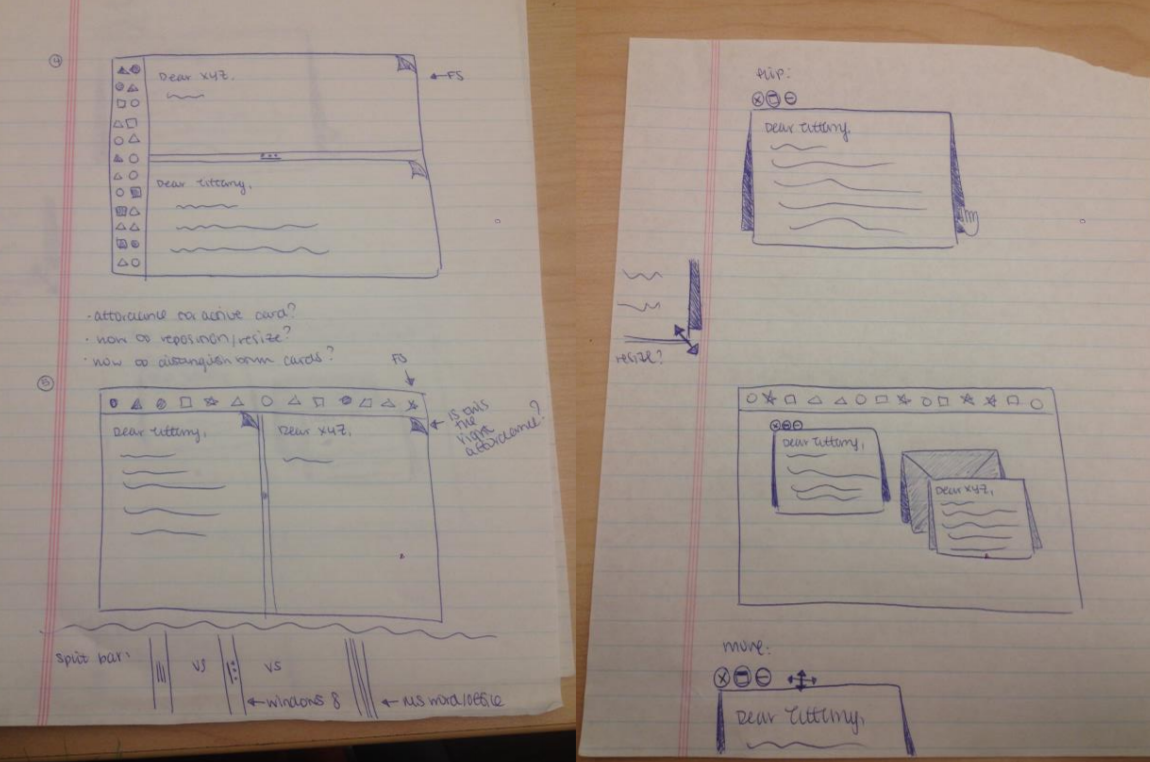 4
Dear XYZ,
FS
Dear Tiffany,
· affordance for active card?
· how to reposition/resize?
· how to distinguish btwn cards?
5
FS
Dear Tiffany,
Dear XYZ,
is this
the
right
affordance?
split bar:
vs
vs
windows 8
MS word/office
flip:
Dear Tiffany,
resize?
Dear Tiffany,
Dear XYZ,
move:
Dear Tiffany,